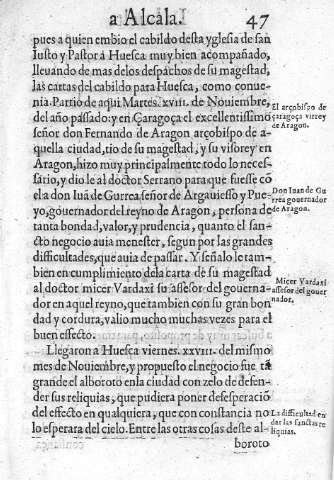 a Alcala. 47
pues a quien embio el cabildo desta yglesia de san
Iusto y Pastor a Huesca muy bien acompañado,
lleuando de mas delos despachos de su magestad,
las cartas del cabildo para Huesca, como conue-
nia. Partio de aqui Martes. xviii. de Nouiembre,
del año passado: y en Çaragoça el excellentissimo
señor don Fernando de Aragon arçobispo de a-
quella ciudad, tio de su magestad, y su visorey en
Aragon, hizo muy principalmente todo lo neces-
sario, y dio le al doctor Serrano para que fuesse cõ
el a don Iuã de Gurrea señor de Argauiesso y Pue-
yo, gouernador del reyno de Aragon, persona de
tanta bondad, valor, y prudencia, quanto el san-
cto negocio auia menester, segun por las grandes
difficultades, que auia de passar. Y señalo le tam-
bien en cumplimiento dela carta de su magestad
al doctor micer Vardaxi su assesor del gouerna-
dor en aquel reyno, que tambien con su gran bon
dad y cordura, valio mucho muchas vezes para el
buen effecto.
Llegaron a Huesca viernes. xxviii. del mismo
mes de Nouiembre, y propuesto el negocio fue tã
grande el alboroto en la ciudad con zelo de defen-
der sus reliquias, que pudiera poner desesperació
del effecto en qualquiera, que con constancia no
lo esperara del cielo. Entre las otras cosas deste al-
boroto
El arçobispo de
Çaragoça virrey
de Aragon.
Don Iuan de Gu
rrea gouernador
de Aragon.
Micer Vardaxi
assesor del gouer
nador.
La difficultad en
dar las sanctas re
liquias.